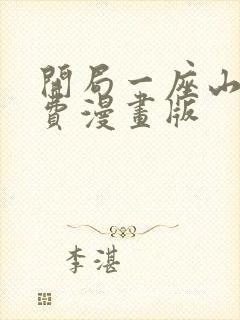 開局一座山
費漫畫版
李湛